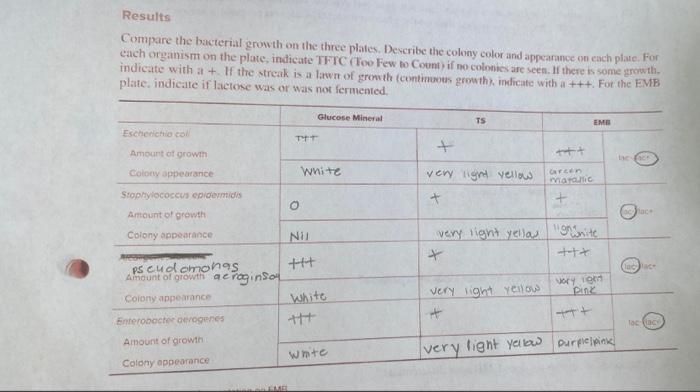 Results
Compare the bacterial growth on the three plates. Describe the colony color and appearance on each plate. For
each organism on the plate, indicate TFTC (Too Few to Count) if no colonies are seen. If there is some growth,
indicate with a +. If the streak is a lawn of growth (continuous growth), indicate with a +++. For the EMB
plate, indicate if lactose was or was not fermented.
Glucose Mineral TS EMB
Escherichia coli
Amount of growth +++ + +++ lac- lac+
Colony appearance White very light yellow Green
matallic
Staphylococcus epidermidis
Amount of growth 0 + + lac- lac+
Colony appearance Nil very light yellow light white
pseudomonas
Amount of growth +++ + +++ lac- lac+
Colony appearance White very light yellow very light
pink
Enterobacter aerogenes
Amount of growth +++ + +++ lac- lac+
Colony appearance White very light yellow purple/pink
EMB